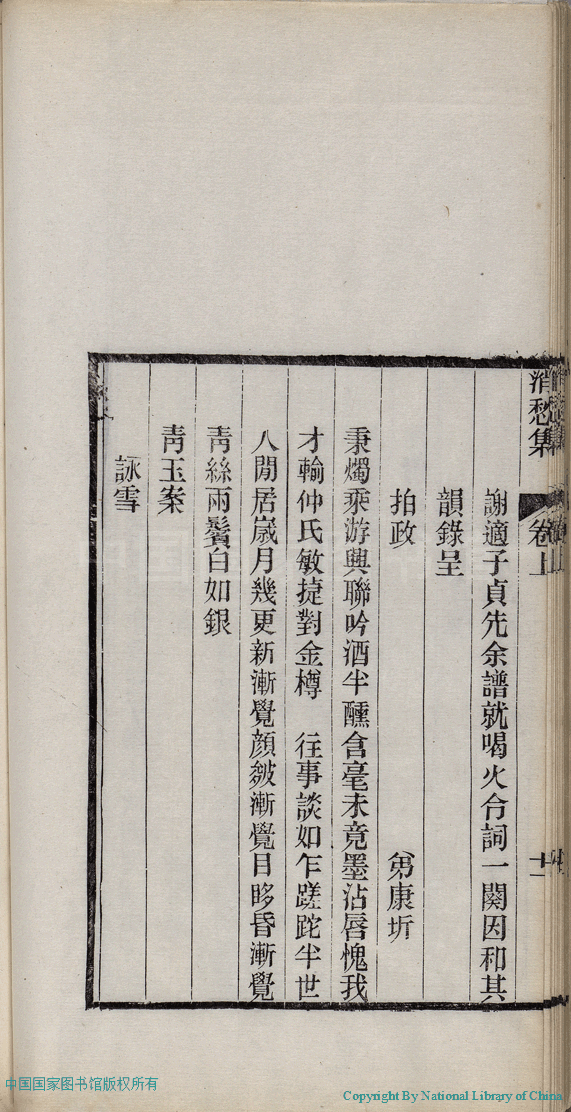 消愁集 卷上 十一
謝適子貞先余譜就喝火令詞一闋因和其
韻錄呈
拍政 弟康圻
秉燭乘游興聯吟酒半醺含毫未竟墨沾唇愧我
才輸仲氏敏捷對金樽 往事談如乍蹉跎半世
人閒居歲月幾更新漸覺顔皴漸覺目眵昏漸覺
青絲兩鬢白如銀
青玉案
詠雪
中国国家图书馆版权所有
Copyright By National Library of China